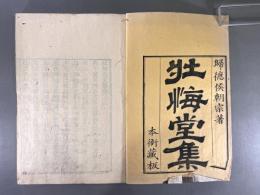 歸德侯朝宗著
壯悔堂集
本衙藏板